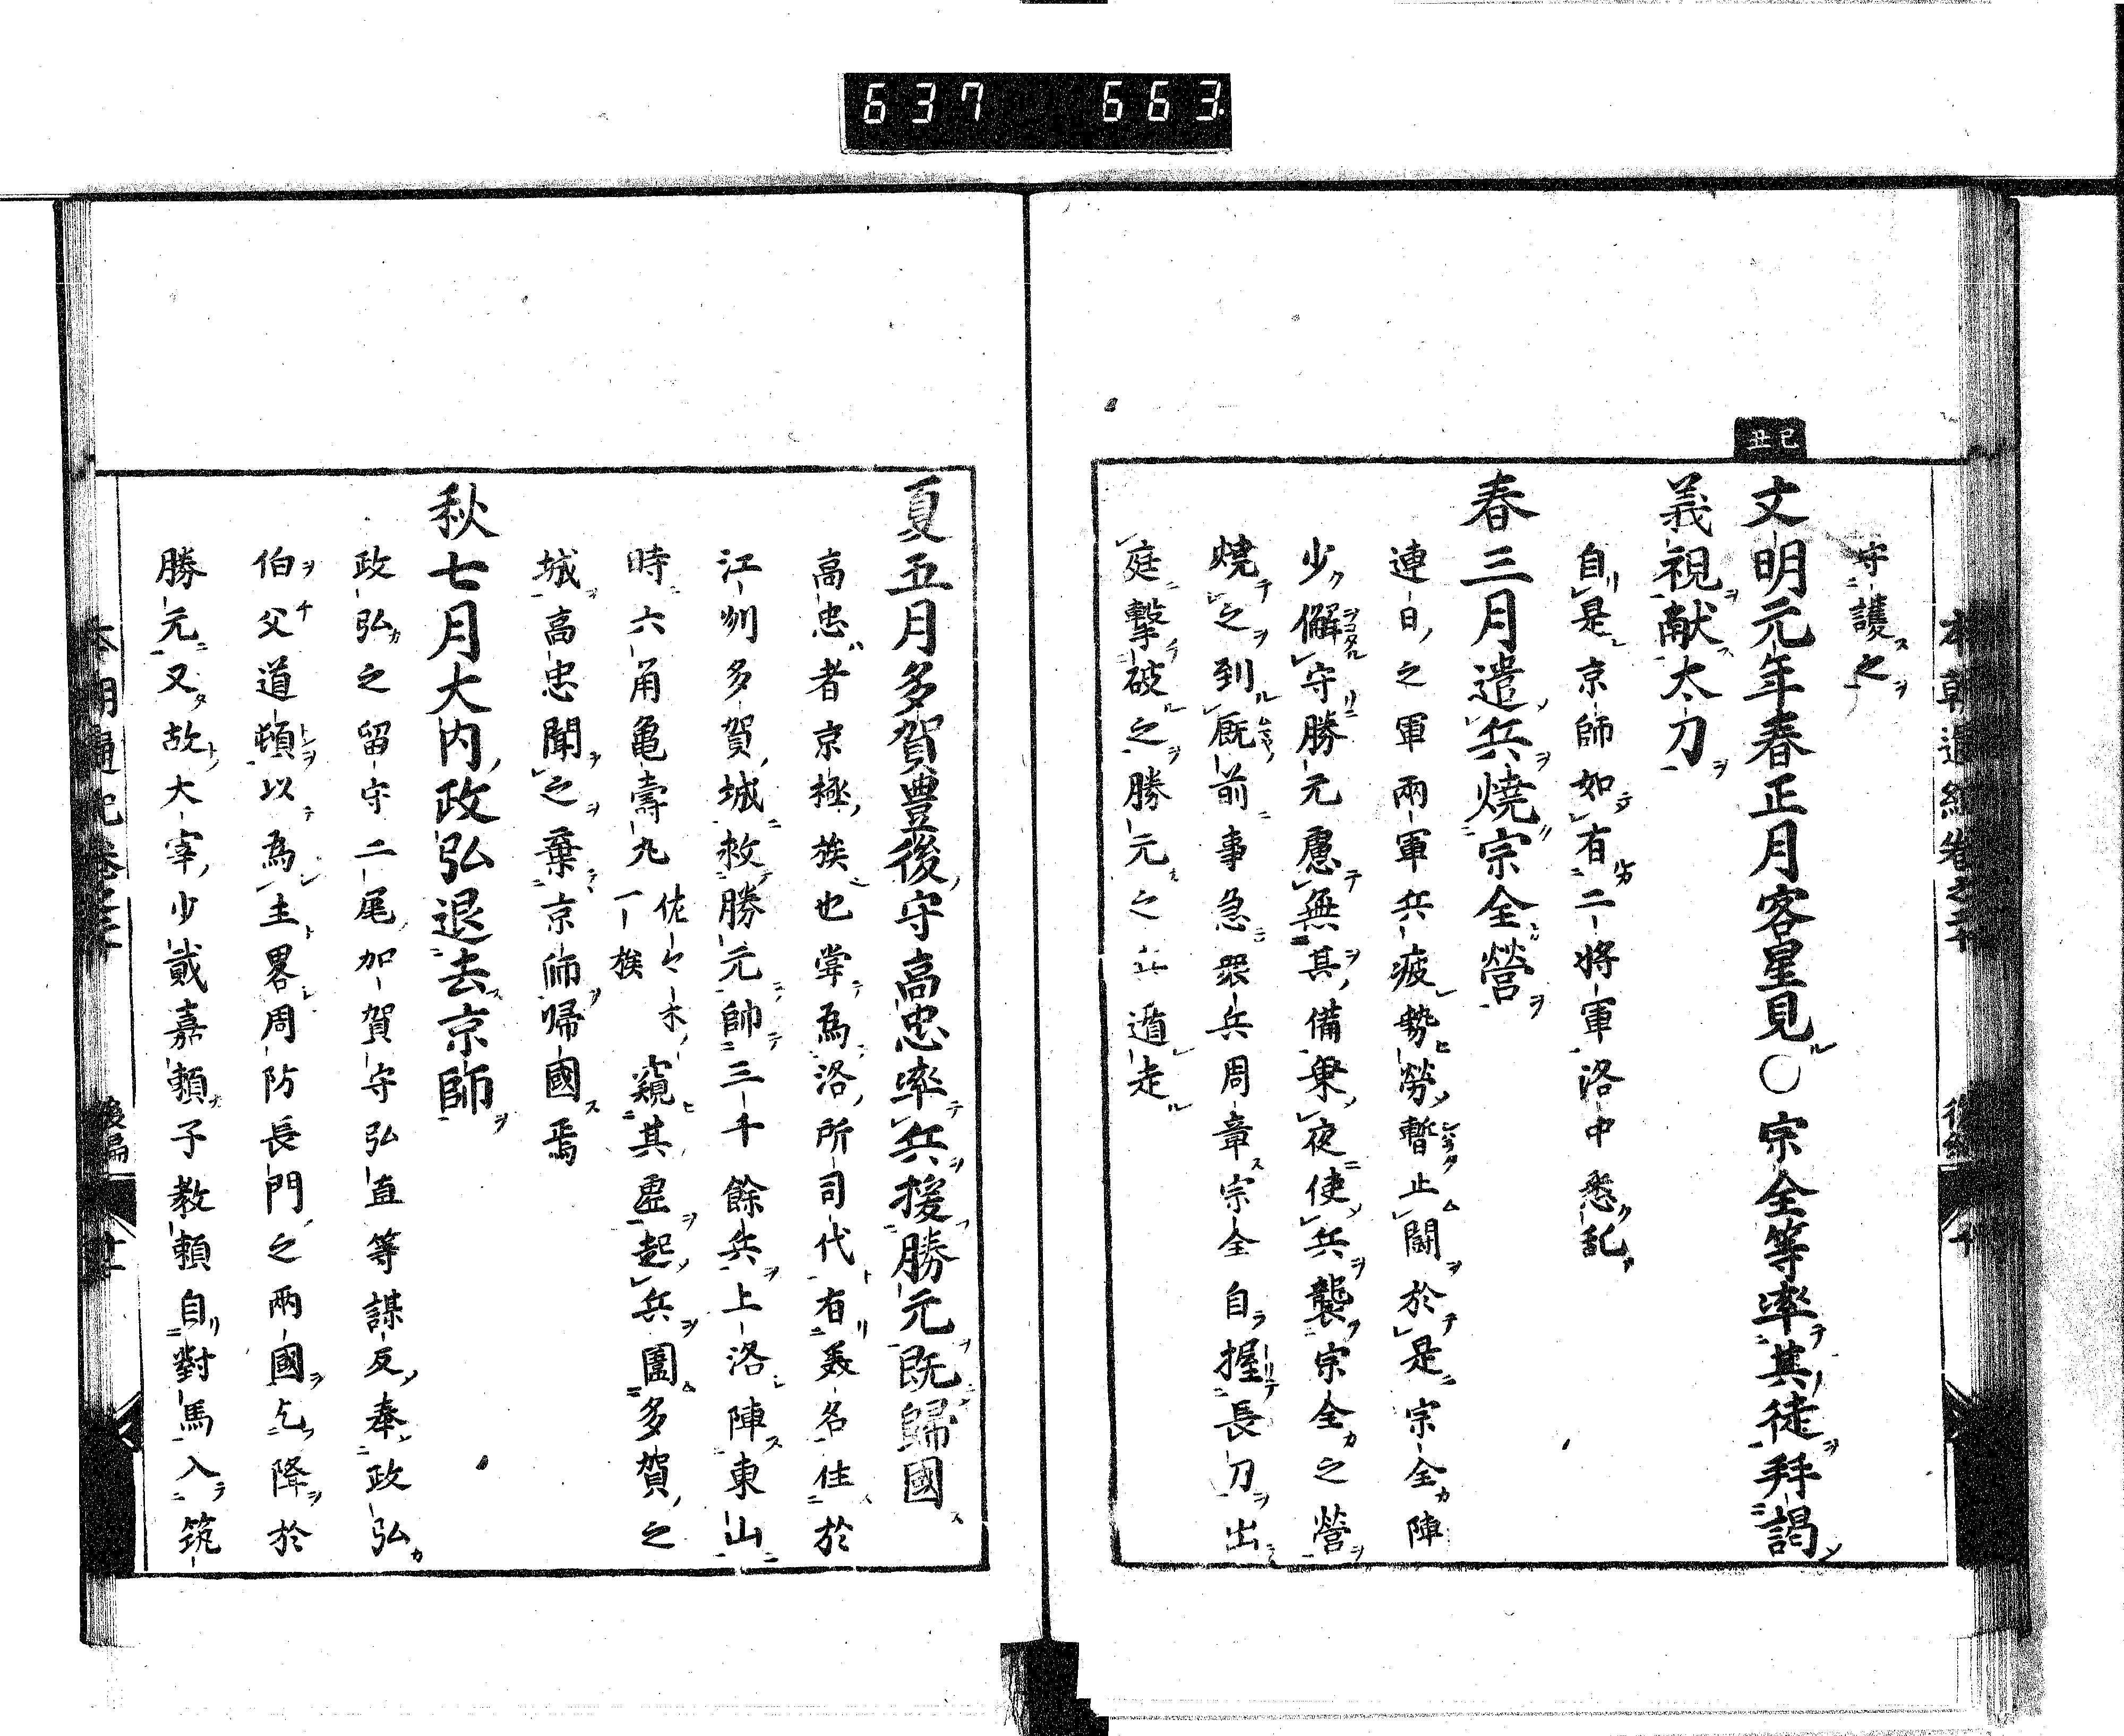 637 663
己丑
守護之
文明元年春正月客星見○宗全等率其徒拜謁
義視献太刀
自是京師如有二将軍洛中悉乱
春三月遣兵燒宗全營
連日之軍兩軍兵疲勢勞暫止闘於是宗全陣
少懈守勝元慮無其備乗夜使兵襲宗全之營
燒之到厩前事急衆兵周章宗全自握長刀出
庭撃破之勝元之兵遁走
夏五月多賀豊後守高忠率兵援勝元既歸國
高忠者京極族也甞為洛所司代有美名住於
江刕多賀城救勝元帥三千餘兵上洛陣東山
時六角亀壽丸佐々木一族窺其虚起兵圍多賀之
城高忠聞之棄京師帰國焉
秋七月大内政弘退去京師
政弘之留守二尾加賀守弘直等謀反奉政弘
伯父道頓以為主畧周防長門之兩國乞降於
勝元又故大宰少貳嘉頼子教頼自對馬入筑